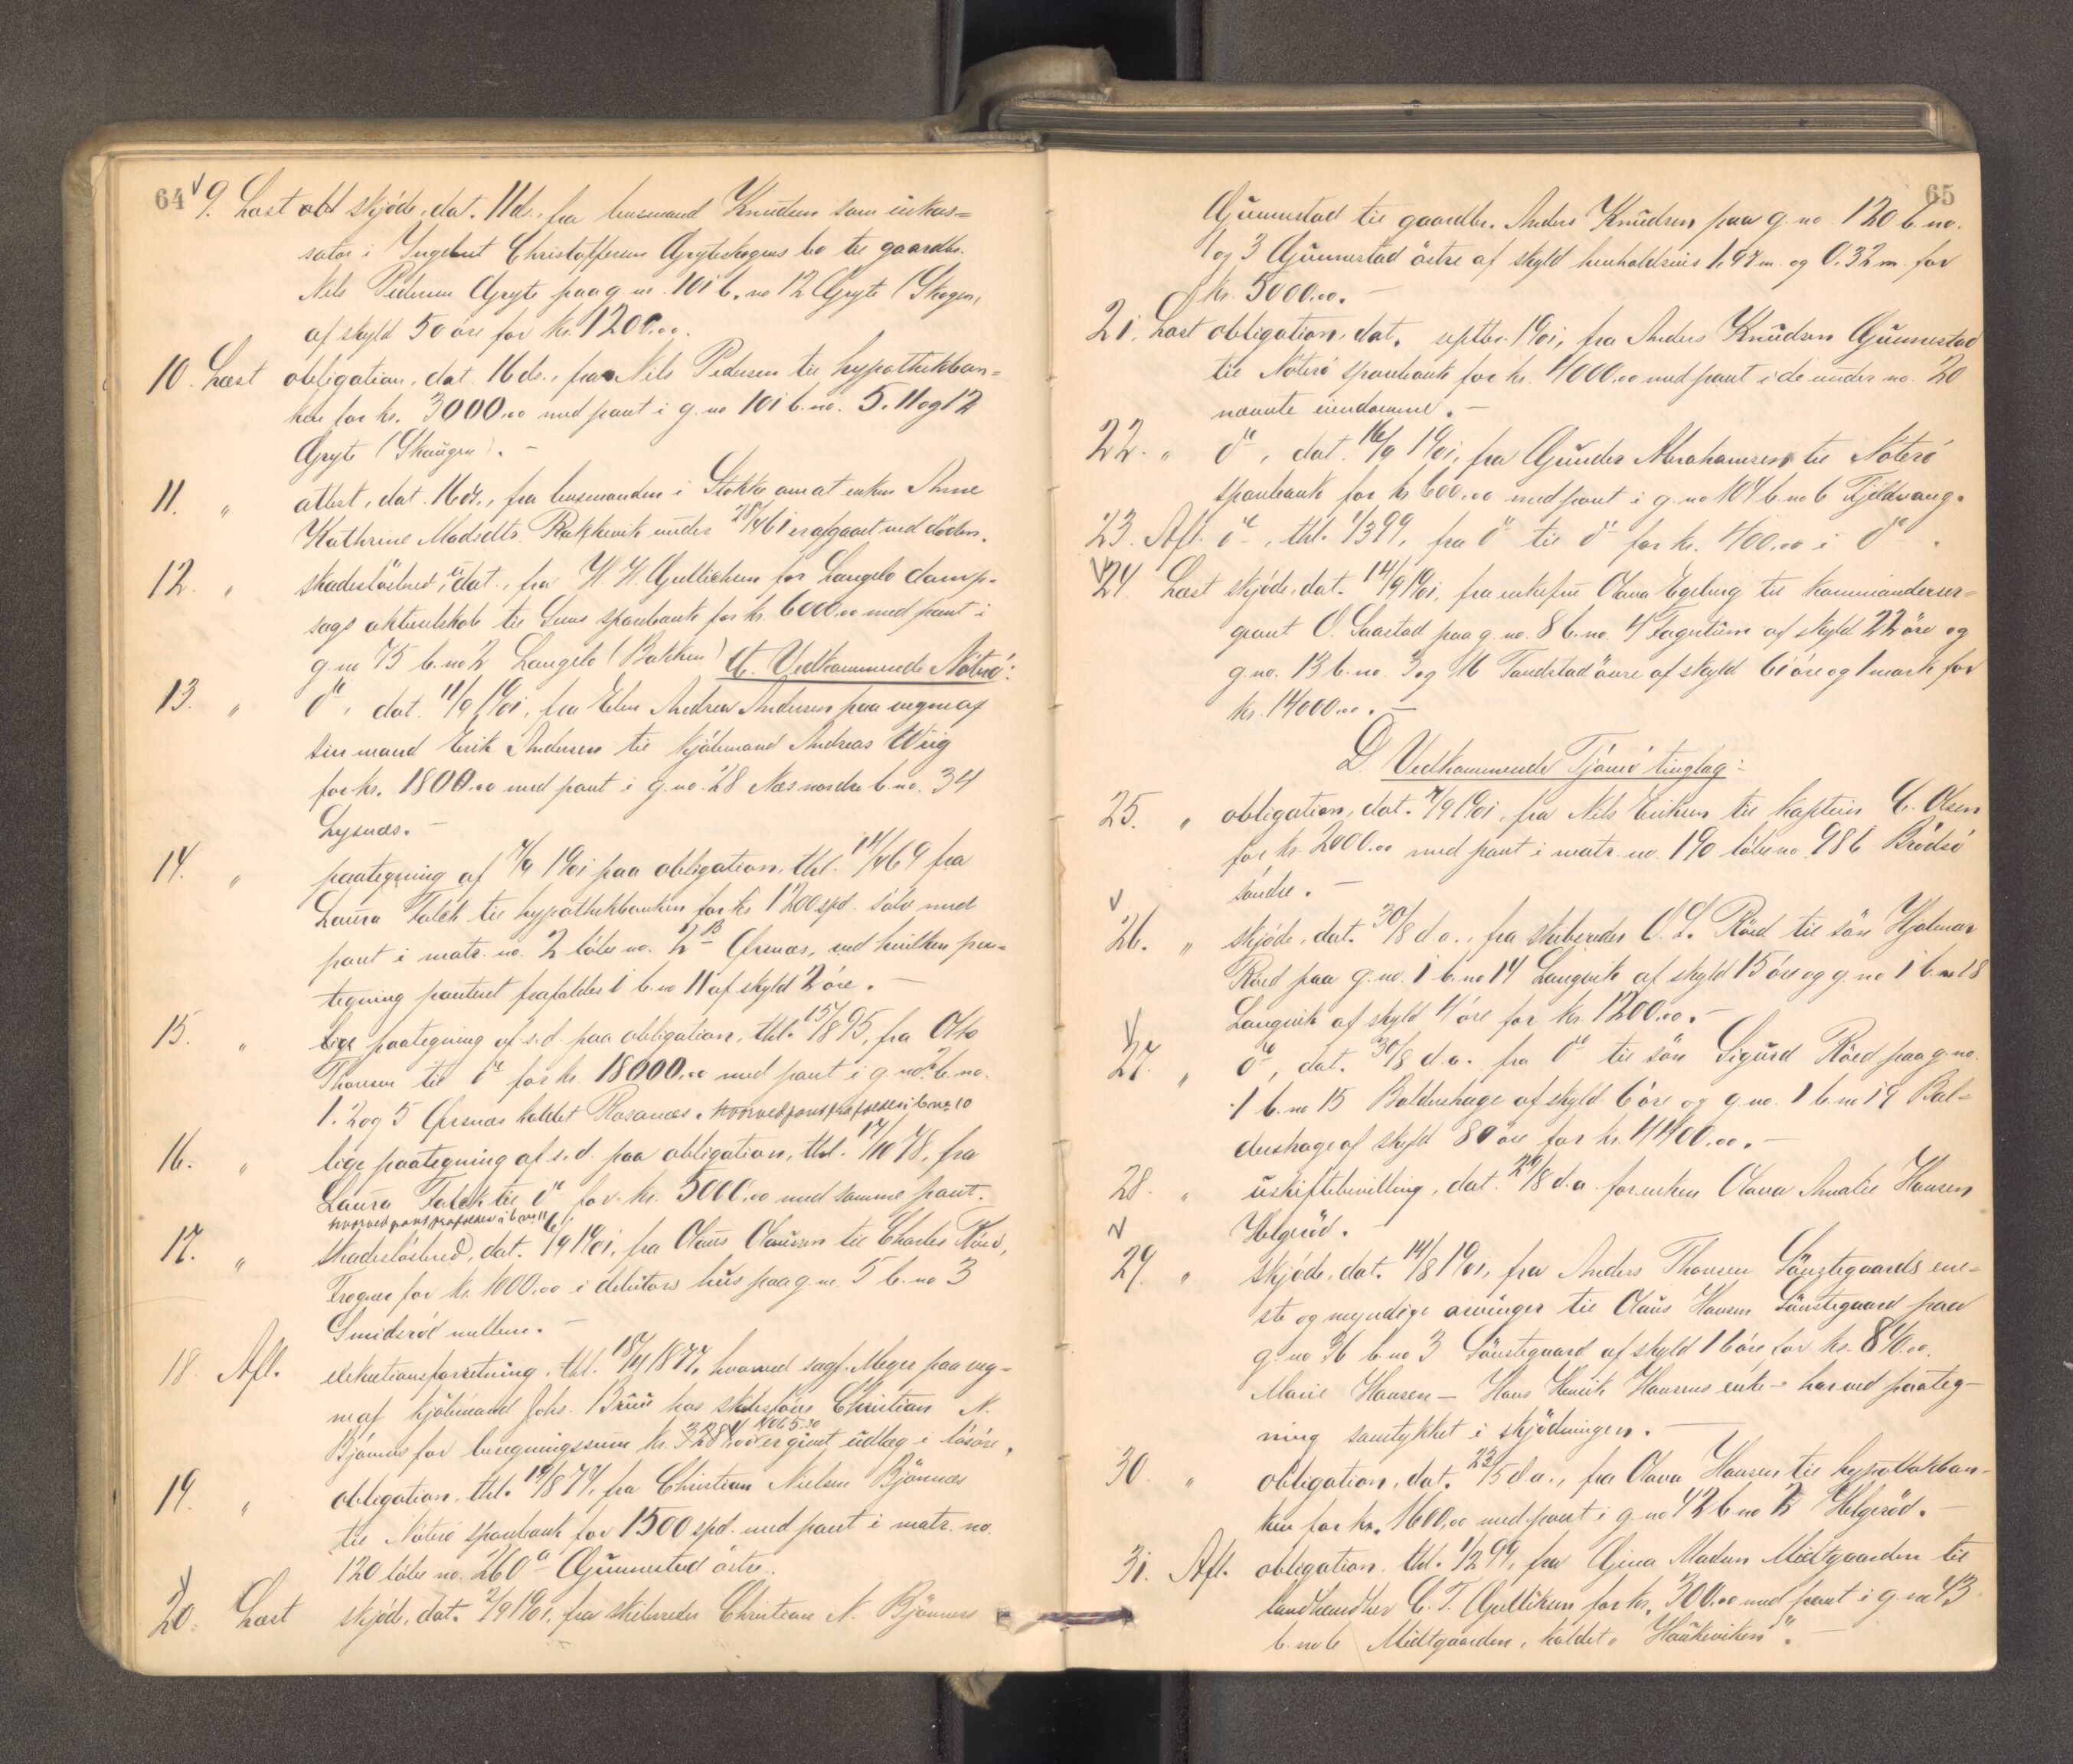 64
9. Læst skjöde, dat. 11 ds., fra lensmand Knudsen som inkas=
sator i Ingebret Christoffersen Gryteskogens bo til gaardbr.
Nils Pedersen Gryte paa g. no. 101 b. no 12 Gryte (Skogen,
af skyld 50 öre for kr. 1200.00.
10. Læst obligation, dat. 16 ds., fra Nils Pedersen til hypothekban=
ken for kr. 3000.00 med pant i g. no 101 b. no. 5. 11 og 12
Gryte (Skaugen). –
11. " attest, dat. 16 ds., fra lensmanden i Stokke om at enken Anne
Kathrine Madsdtr. under 28/4 61 er afgaaet ved döden.
12. " skadeslösbrev, dat., fra H. H. Gullichsen for Langelo damp=
sags aktieselskab til Sems sparebank for kr. 6000.00 med pant i
g. no 75 b. no 2 Langelo (Bakken) C. Vedkommende Nöterö:
13. " do, dat. 11/9 1901, fra Elen Andrea Andersen paa vegne af
sin mand Erik Andersen til kjöbmand Andreas Wiig
for kr. 1800.00 med pant i g. no. 28 Næs nordre b. no. 34
Lysnæs. –
14. " paategning af 4/9 1901 paa obligation, thl. 14/4 69 fra
Laura Falck til hypothekbanken for kr 1200 spd. sölv med
pant i matr. no. 2 löbe no. 2 B Örsnæs, ved hvilken paa=
tegning panteret frafaldes i b. no 11 af skyld 2 öre. –
15. " lige paategning af s. d. paa obligation, thl. 15/8 95, fra Otto
Thoresen til do for kr. 18000.00 med pant i g. no 2 b. no.
1. 2 og 5 Örsnæs kaldet Rosanæs. hvorved pant frafaldes i b no 10
16. " lige paategning af s. d. paa obligation, thl. 17/10 78, fra
Laura Falck til do for kr. 5000.00 med samme pant.
hvorved pant frafaldes i b no 11
17. " skadeslösbrev, dat. 6/9 1901, fra Olaus Olaussen til Charles Röed,
for kr. 1000.00 i debitors hus paa g. no. 5 b. no 3
Smidsröd mellem. –
18. Afl. exekutionsforretning, thl. 18/4 1877, hvorved sagf. Meyer paa veg=
ne af kjöbmand Johs. Bruu hos skibsförer Christian N.
Björnnes for beregningssum kr. er giort udlæg i lösöre.
19. " obligation, thl. 14/8 74, fra Christian Nielsen Björnnæs
til Nöterö sparebank for 1500 spd. med pant i matr. no.
120 löbe no. 260 a Gunnestad östre.
20. Læst skjöde, dat. 2/9 1901, fra skibsreder Christian N. Björnnes
65
Gunnestad til gaardbr. Anders Knudsen paa g. no. 120 b. no.
1 og 3 Gunnestad östre af skyld henholdsvis 1.97 m. og 0.32 m. for
kr. 5000.00. –
21. Læst obligation, dat. septbr. 1901, fra Anders Knudsen Gunnestad
til Nöterö sparebank for kr. 4000.00 med pant i de under no. 20
nævnte eiendomme. –
22. " do, dat. 16/9 1901, fra Gunder Abrahamsen til Nöterö
sparebank for kr 600.00 med pant i g. no 104 b. no 6 Fjeldvang.
23. Afl. do, thl. 1/3 99, fra do til do for kr. 400.00 i do.
24. Læst skjöde, dat. 14/9 1901, fra enkefru Olava Egeberg til kommandersер=
geant O. Saastad paa g. no. 8 b. no. 4 Fagertun af skyld 22 öre og
g. no. 13 b. no. 3 og 16 Tandstad övre af skyld 61 öre og 1 mark for
kr. 14000.00. –
D. Vedkommende Tjömö tinglag:
25. " obligation, dat. 7/9 1901, fra Nils Eriksen til kaptein C. Olsen
for kr. 2000.00 med pant i matr. no. 190 löbe no. 986 Brödsö
söndre. –
26. " skjöde, dat. 30/8 d. a., fra skibsreder O. L. Röed til sön Hjalmar
Röed paa g. no. 1 b. no 14 Langvik af skyld 15 öre og g. no 1 b no 18
Langvik af skyld 4 öre for kr. 1200.00. –
27. " do, dat. 30/8 d. a. fra do til sön Sigurd Röed paa g. no.
1 b. no 15 Baldershage af skyld 6 öre og g. no. 1 b. no 19 Bal=
dershage af skyld 80 öre for kr. 4400.00. –
28. " uskiftebevilling, dat. 20/8 d. a. for enken Olava Amalie Hansen
Helgeröd. –
29. " skjöde, dat. 14/8 1901, fra Anders Thoresen Sönstegaards ene=
ste og myndige arvinger til Olaus Hansen Sönstegaard paa
g. no 36 b. no 3 Sönstegaard af skyld 16 öre for kr. 840.00.
Marie Hansen – Hans Henrik Hansens enke – har ved paateg=
ning samtykket i skjödningen. –
30. " obligation, dat. 22/5 d. a., fra Olava Hansen til hypothekban=
ken for kr. 1600.00 med pant i g. no 42 b. no Helgeröd. –
31. Afl. obligation, thl. 1/2 99, fra Gina Madsen Midtgaarden til
landhandler C. T. Gulliksen for kr. 300.00 med pant i g. no 43
b. no 6 Midtgaarden, kaldet „Haukeviken". –